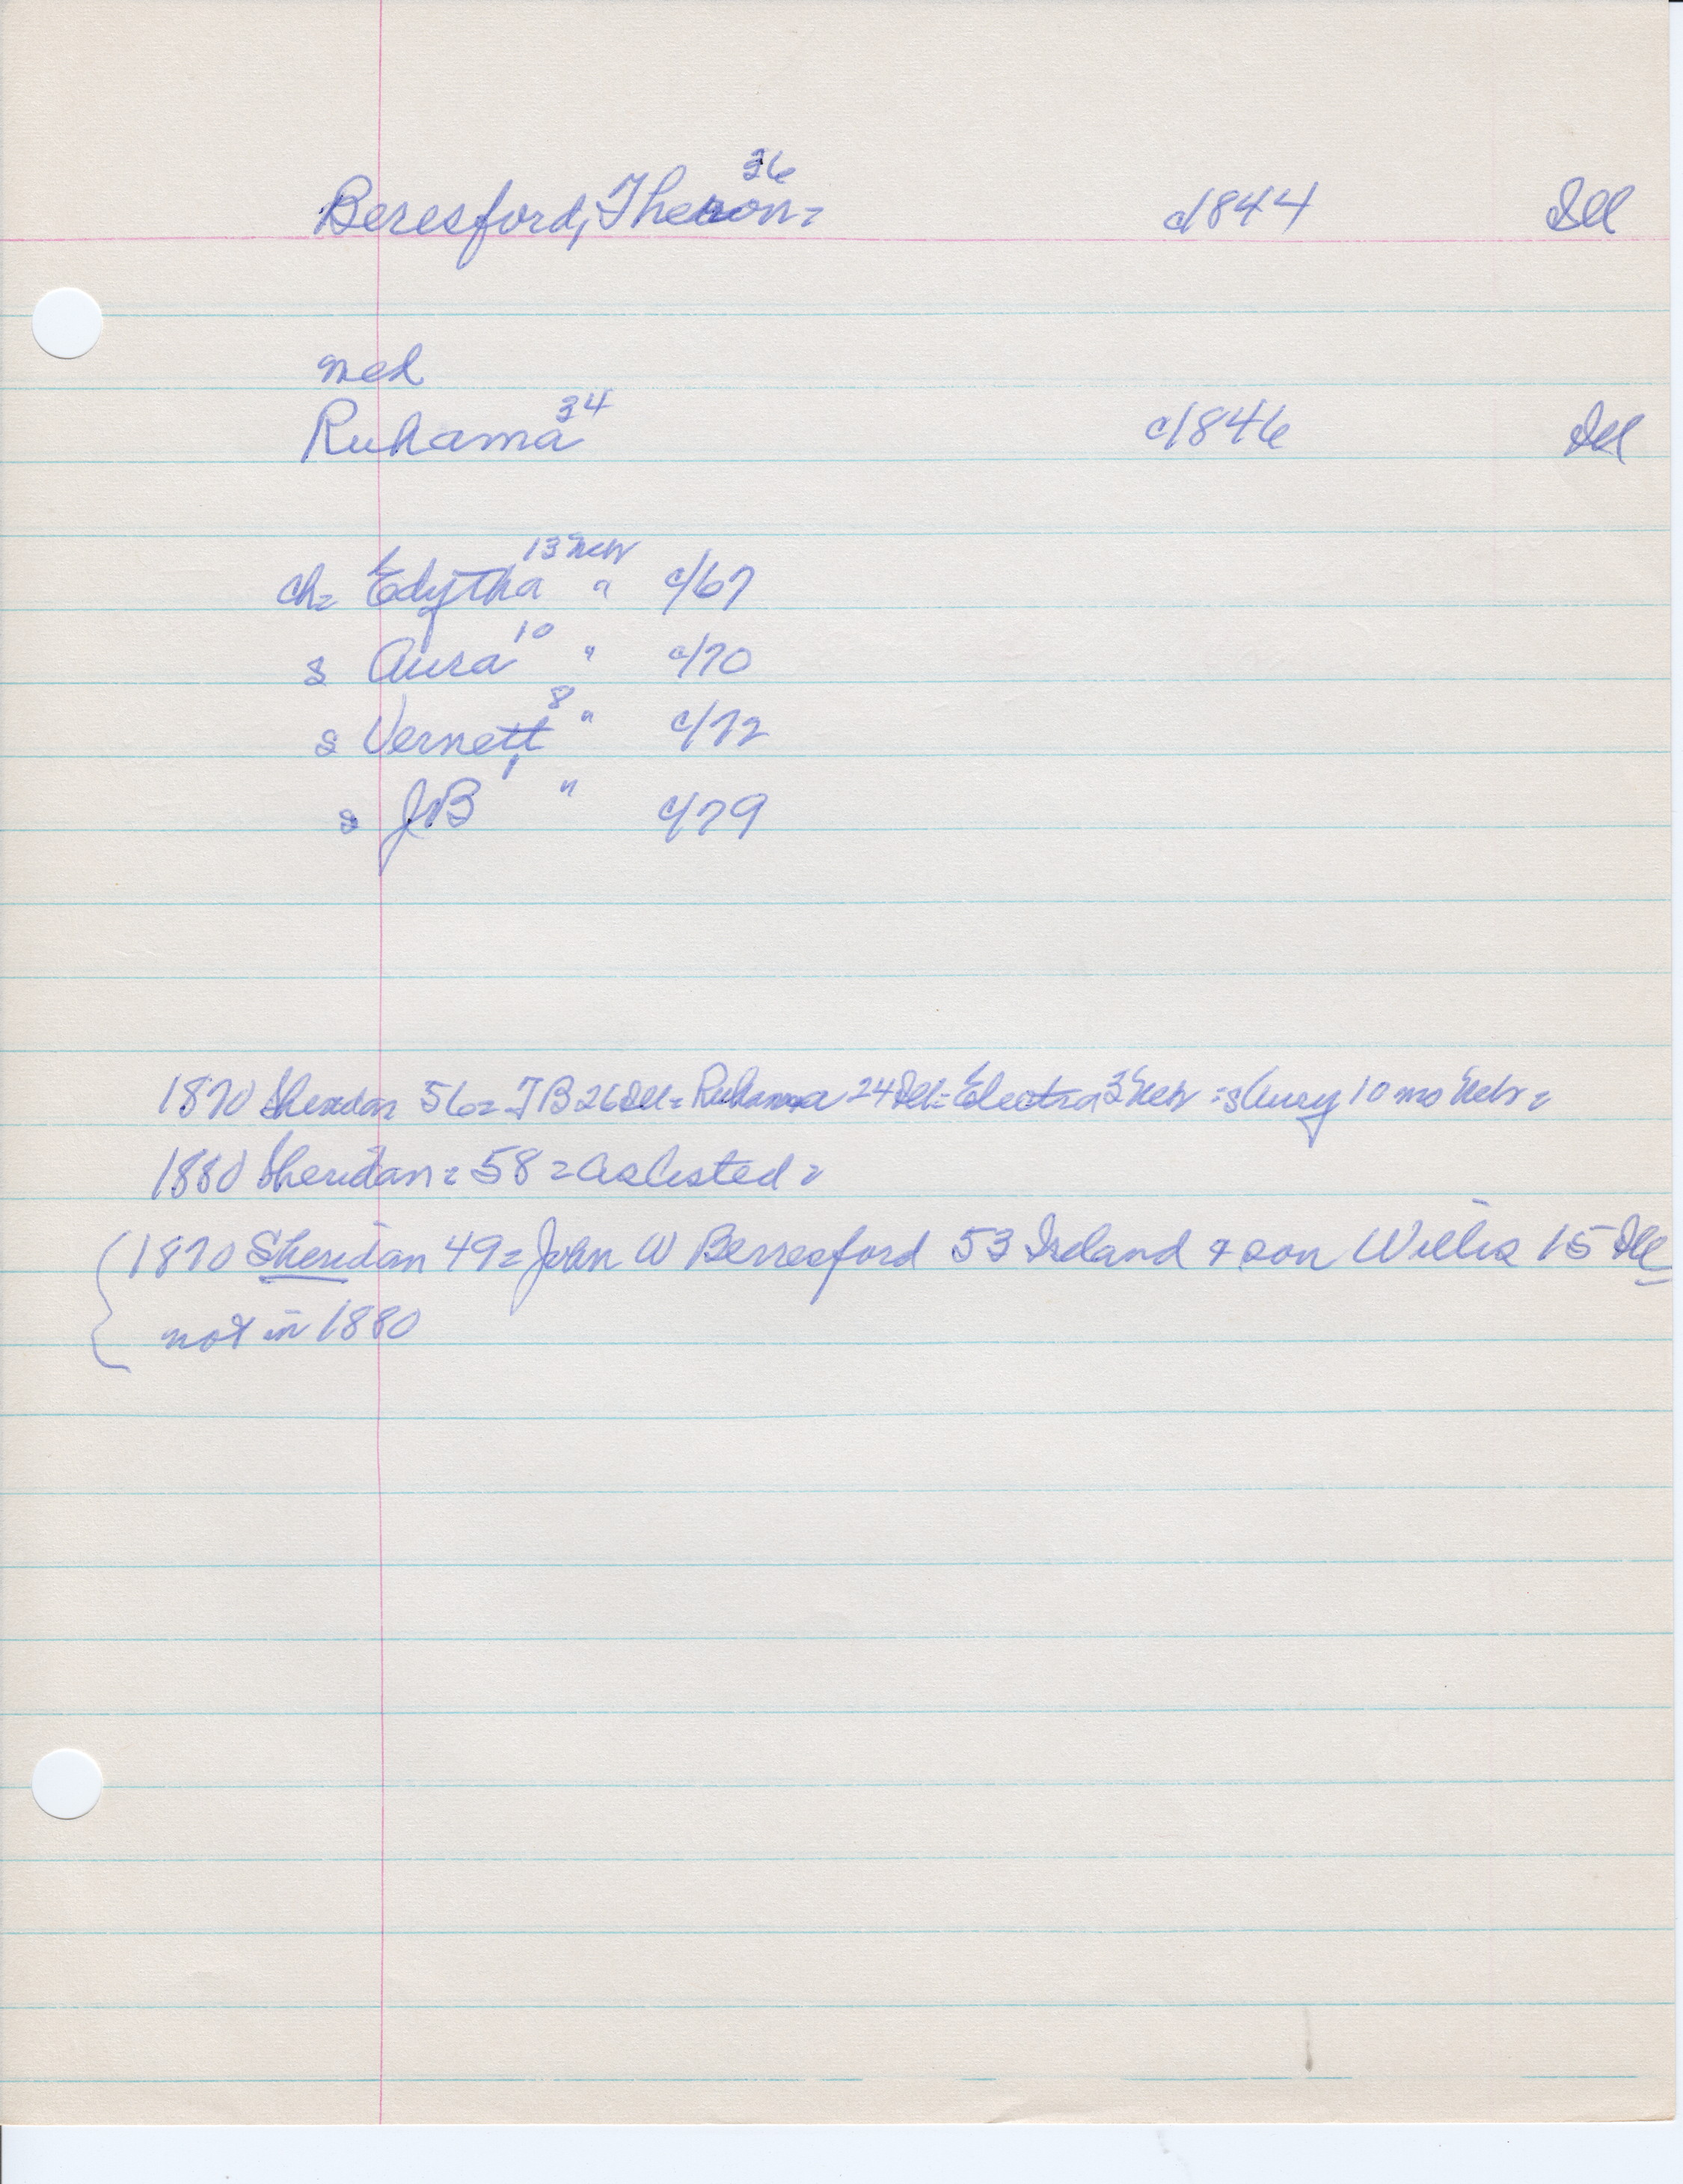 Beresford, Theron 36 = c1844 Ill
med
Ruhama 34 c1846 Ill
ch= Edytha 13 Nebr " c/67
s Aura 10 " c/70
s Vernett 8 " c/72
s JB 1 " c/79
1870 Sheridan 56= TB 26 Ill= Ruhama 24 Ill= Electra 3 Nebr = s 10 mo Nebr =
1880 Sheridan = 58 = as listed =
(1870 Sheridan 49= John W Berresford 53 Ireland & son Willis 15 Ill
not in 1880